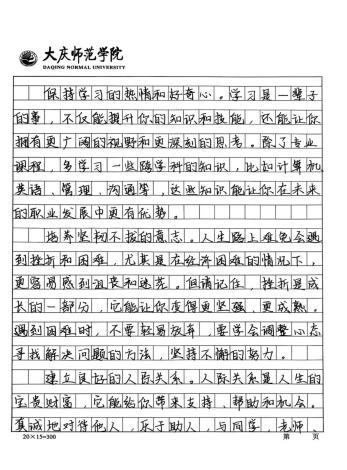 大庆师范学院
DAQING NORMAL UNIVERSITY
保持学习的热情和好奇心。学习是一辈子
的事，不仅能提升你的知识和技能，还能让你
拥有更广阔的视野和更深刻的思考。除了专业
课程，多学习一些跨学科的知识，比如计算机、
英语、管理、沟通等，这些知识能让你在未来
的职业发展中更有优势。
培养坚韧不拔的意志。人生路上难免会遇
到挫折和困难，尤其是在经济困难的情况下，
更容易感到沮丧和迷茫。但请记住，挫折是成
长的一部分，它能让你变得更坚强、更成熟。
遇到困难时，不要轻易放弃，要学会调整心态
寻找解决问题的方法，坚持不懈的努力。
建立良好的人际关系。人际关系是人生的
宝贵财富，它能给你带来支持、帮助和机会。
真诚地对待他人，乐于助人，与同学、老师、
20×15=300 第 页